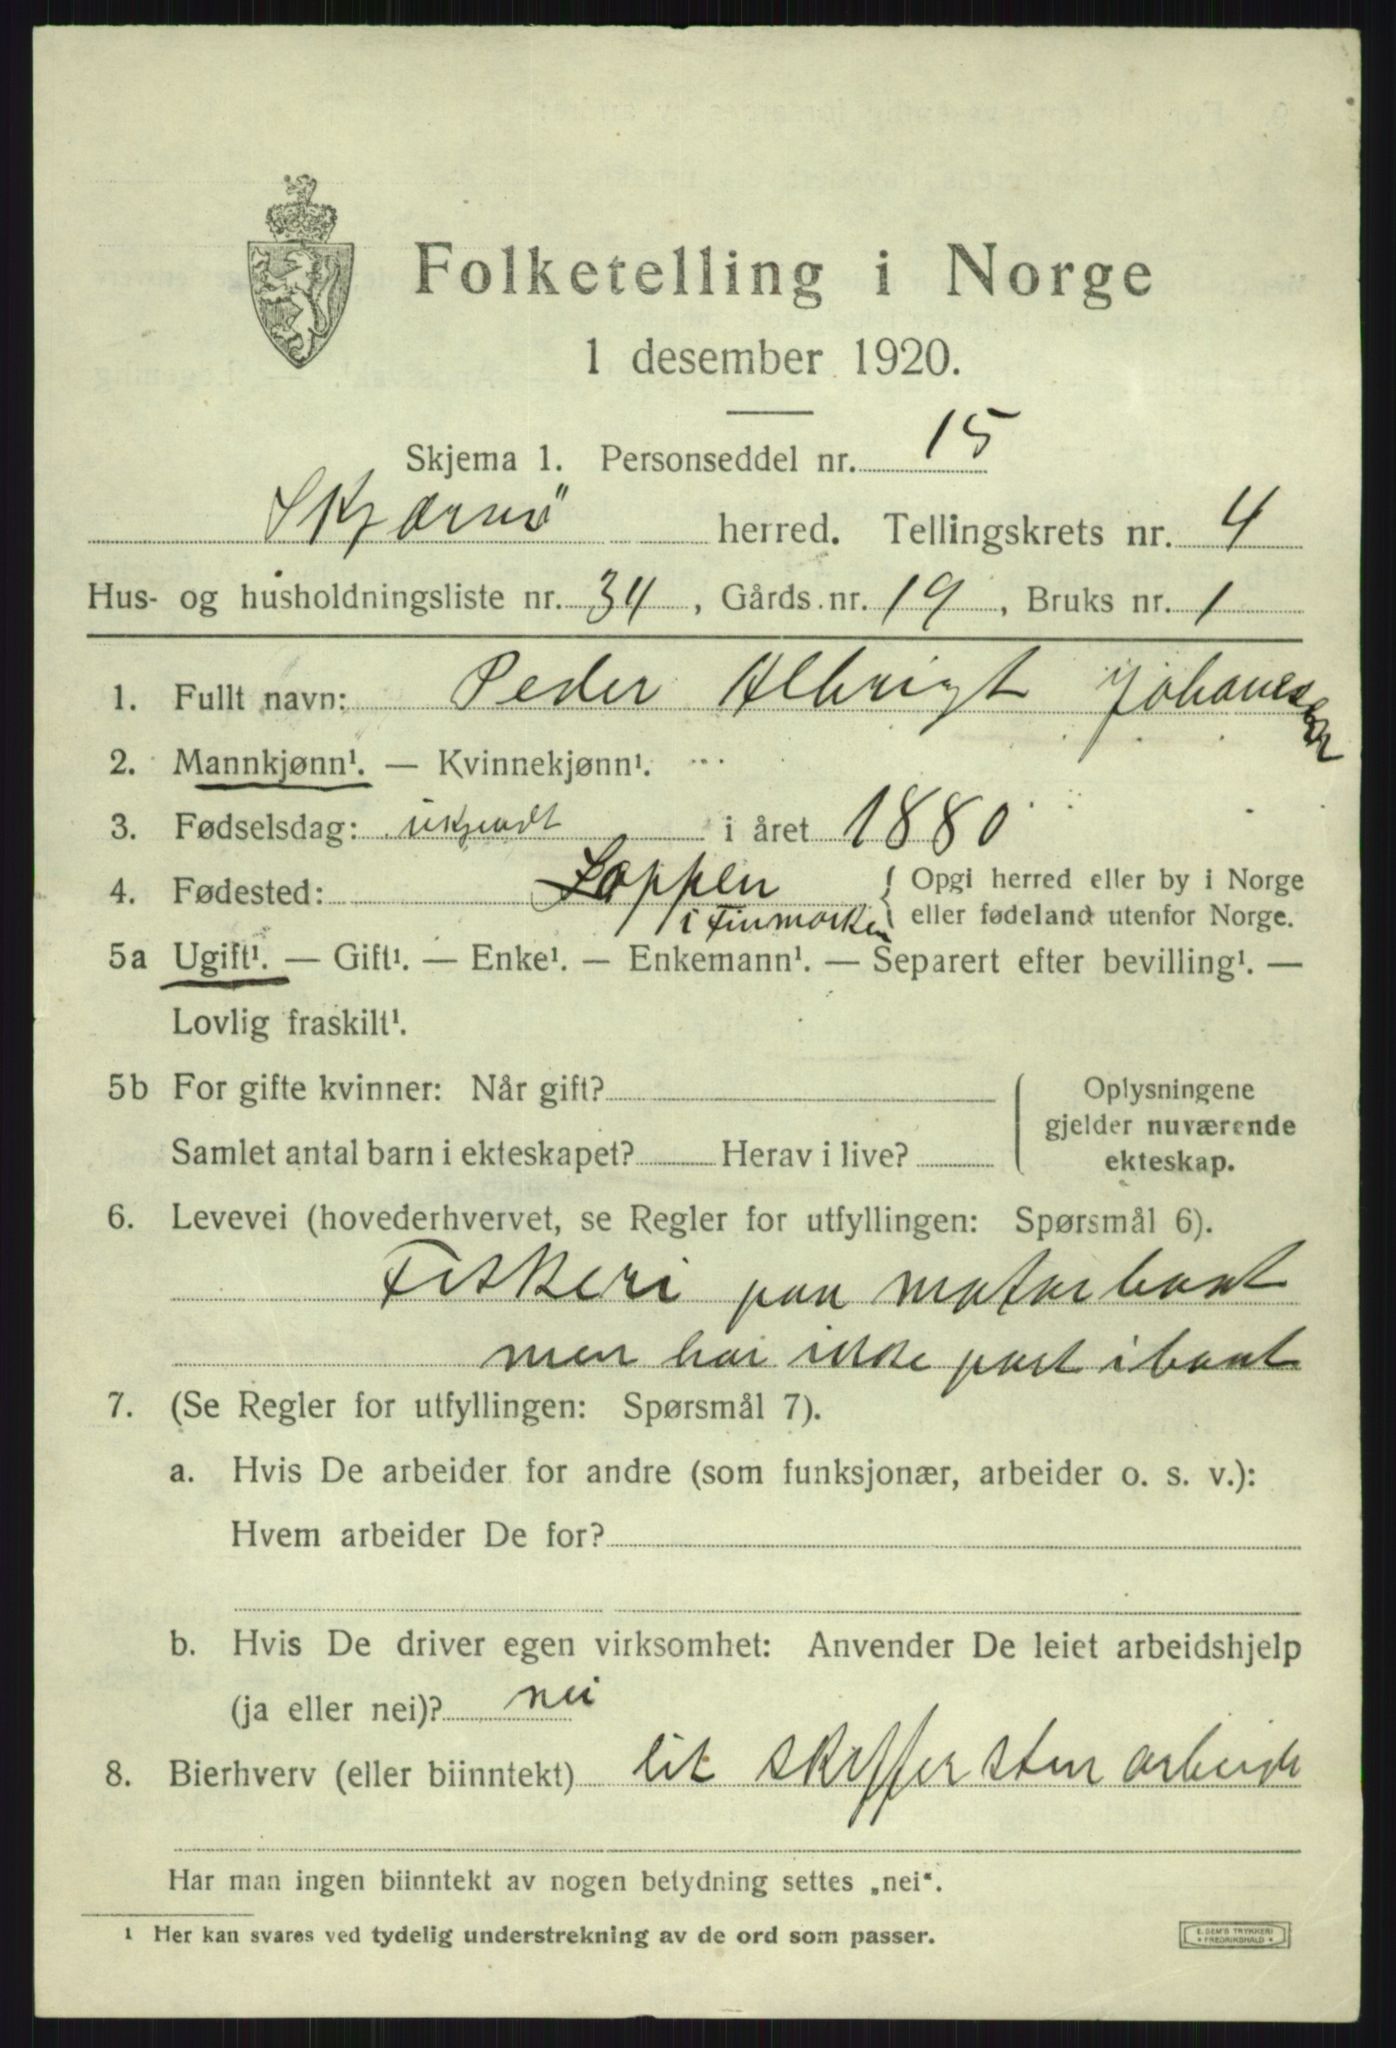 Folketelling i Norge
1 desember 1920.
Skjema 1. Personseddel nr. 15
Skjærvö herred. Tellingskrets nr. 4
Hus- og husholdningsliste nr. 34, Gårds nr. 19, Bruks nr. 1
1. Fullt navn: Peder Albrigt Johanesen
2. Mannkjønn¹. — Kvinnekjønn¹.
3. Fødselsdag: ukjendt i året 1880
4. Fødested: Loppen { Opgi herred eller by i Norge
i Finmarken eller fødeland utenfor Norge.
5a Ugift¹. — Gift¹. — Enke¹. — Enkemann¹. — Separert efter bevilling¹. —
Lovlig fraskilt¹.
5b For gifte kvinner: Når gift? Oplysningene
gjelder nuværende
Samlet antal barn i ekteskapet? Herav i live? ekteskap.
6. Levevei (hovederhvervet, se Regler for utfyllingen: Spørsmål 6).
Fiskeri paa motorbaat
men har ikke part i baat
7. (Se Regler for utfyllingen: Spørsmål 7).
a. Hvis De arbeider for andre (som funksjonær, arbeider o. s. v.):
Hvem arbeider De for?
b. Hvis De driver egen virksomhet: Anvender De leiet arbeidshjelp
(ja eller nei)? nei
8. Bierhverv (eller biinntekt) lit skiffer sten arbeide
Har man ingen biinntekt av nogen betydning settes „nei“.
¹ Her kan svares ved tydelig understrekning av de ord som passer.
E. SEM'S TRYKKERI
• FREDRIKSHALD •